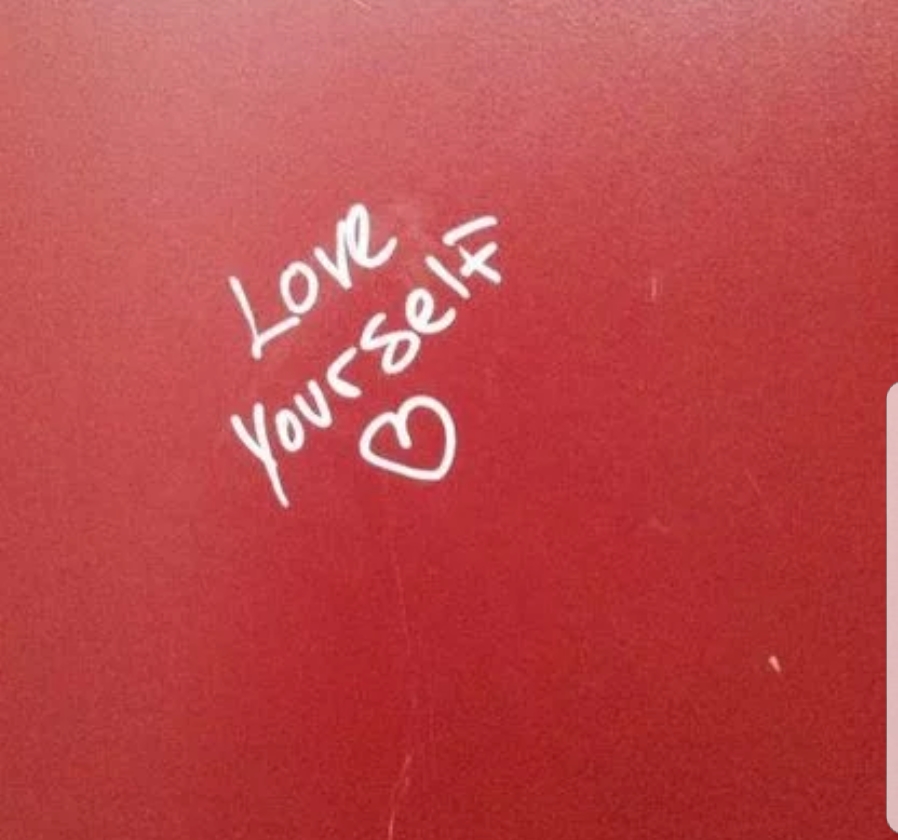 Love
Yourself